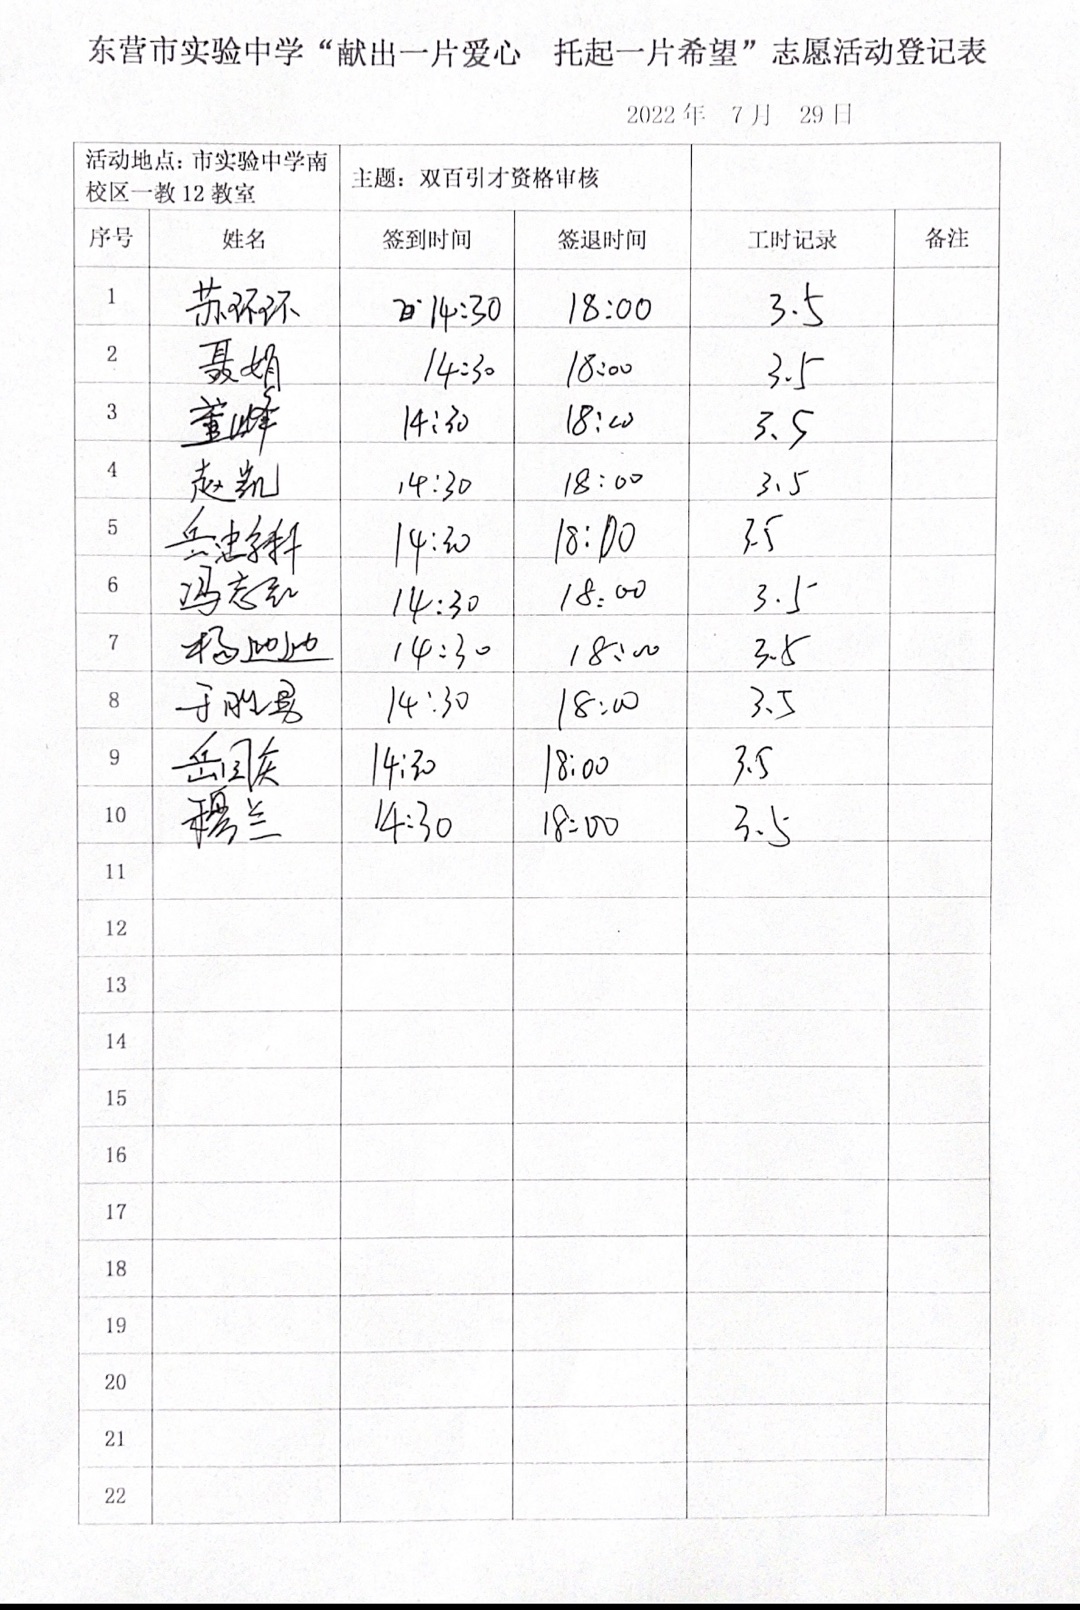 东营市实验中学“献出一片爱心 托起一片希望”志愿活动登记表
2022年 7月 29日
活动地点：市实验中学南
校区一教12教室
主题：双百引才资格审核
序号 姓名 签到时间 签退时间 工时记录 备注
1 苏环环 14:30 18:00 3.5
2 聂娟 14:30 18:00 3.5
3 董峰 14:30 18:00 3.5
4 赵凯 14:30 18:00 3.5
5 岳忠 14:30 18:00 3.5
6 冯志 14:30 18:00 3.5
7 杨 14:30 18:00 3.5
8 于胜男 14:30 18:00 3.5
9 岳 14:30 18:00 3.5
10 穆兰 14:30 18:00 3.5
11
12
13
14
15
16
17
18
19
20
21
22